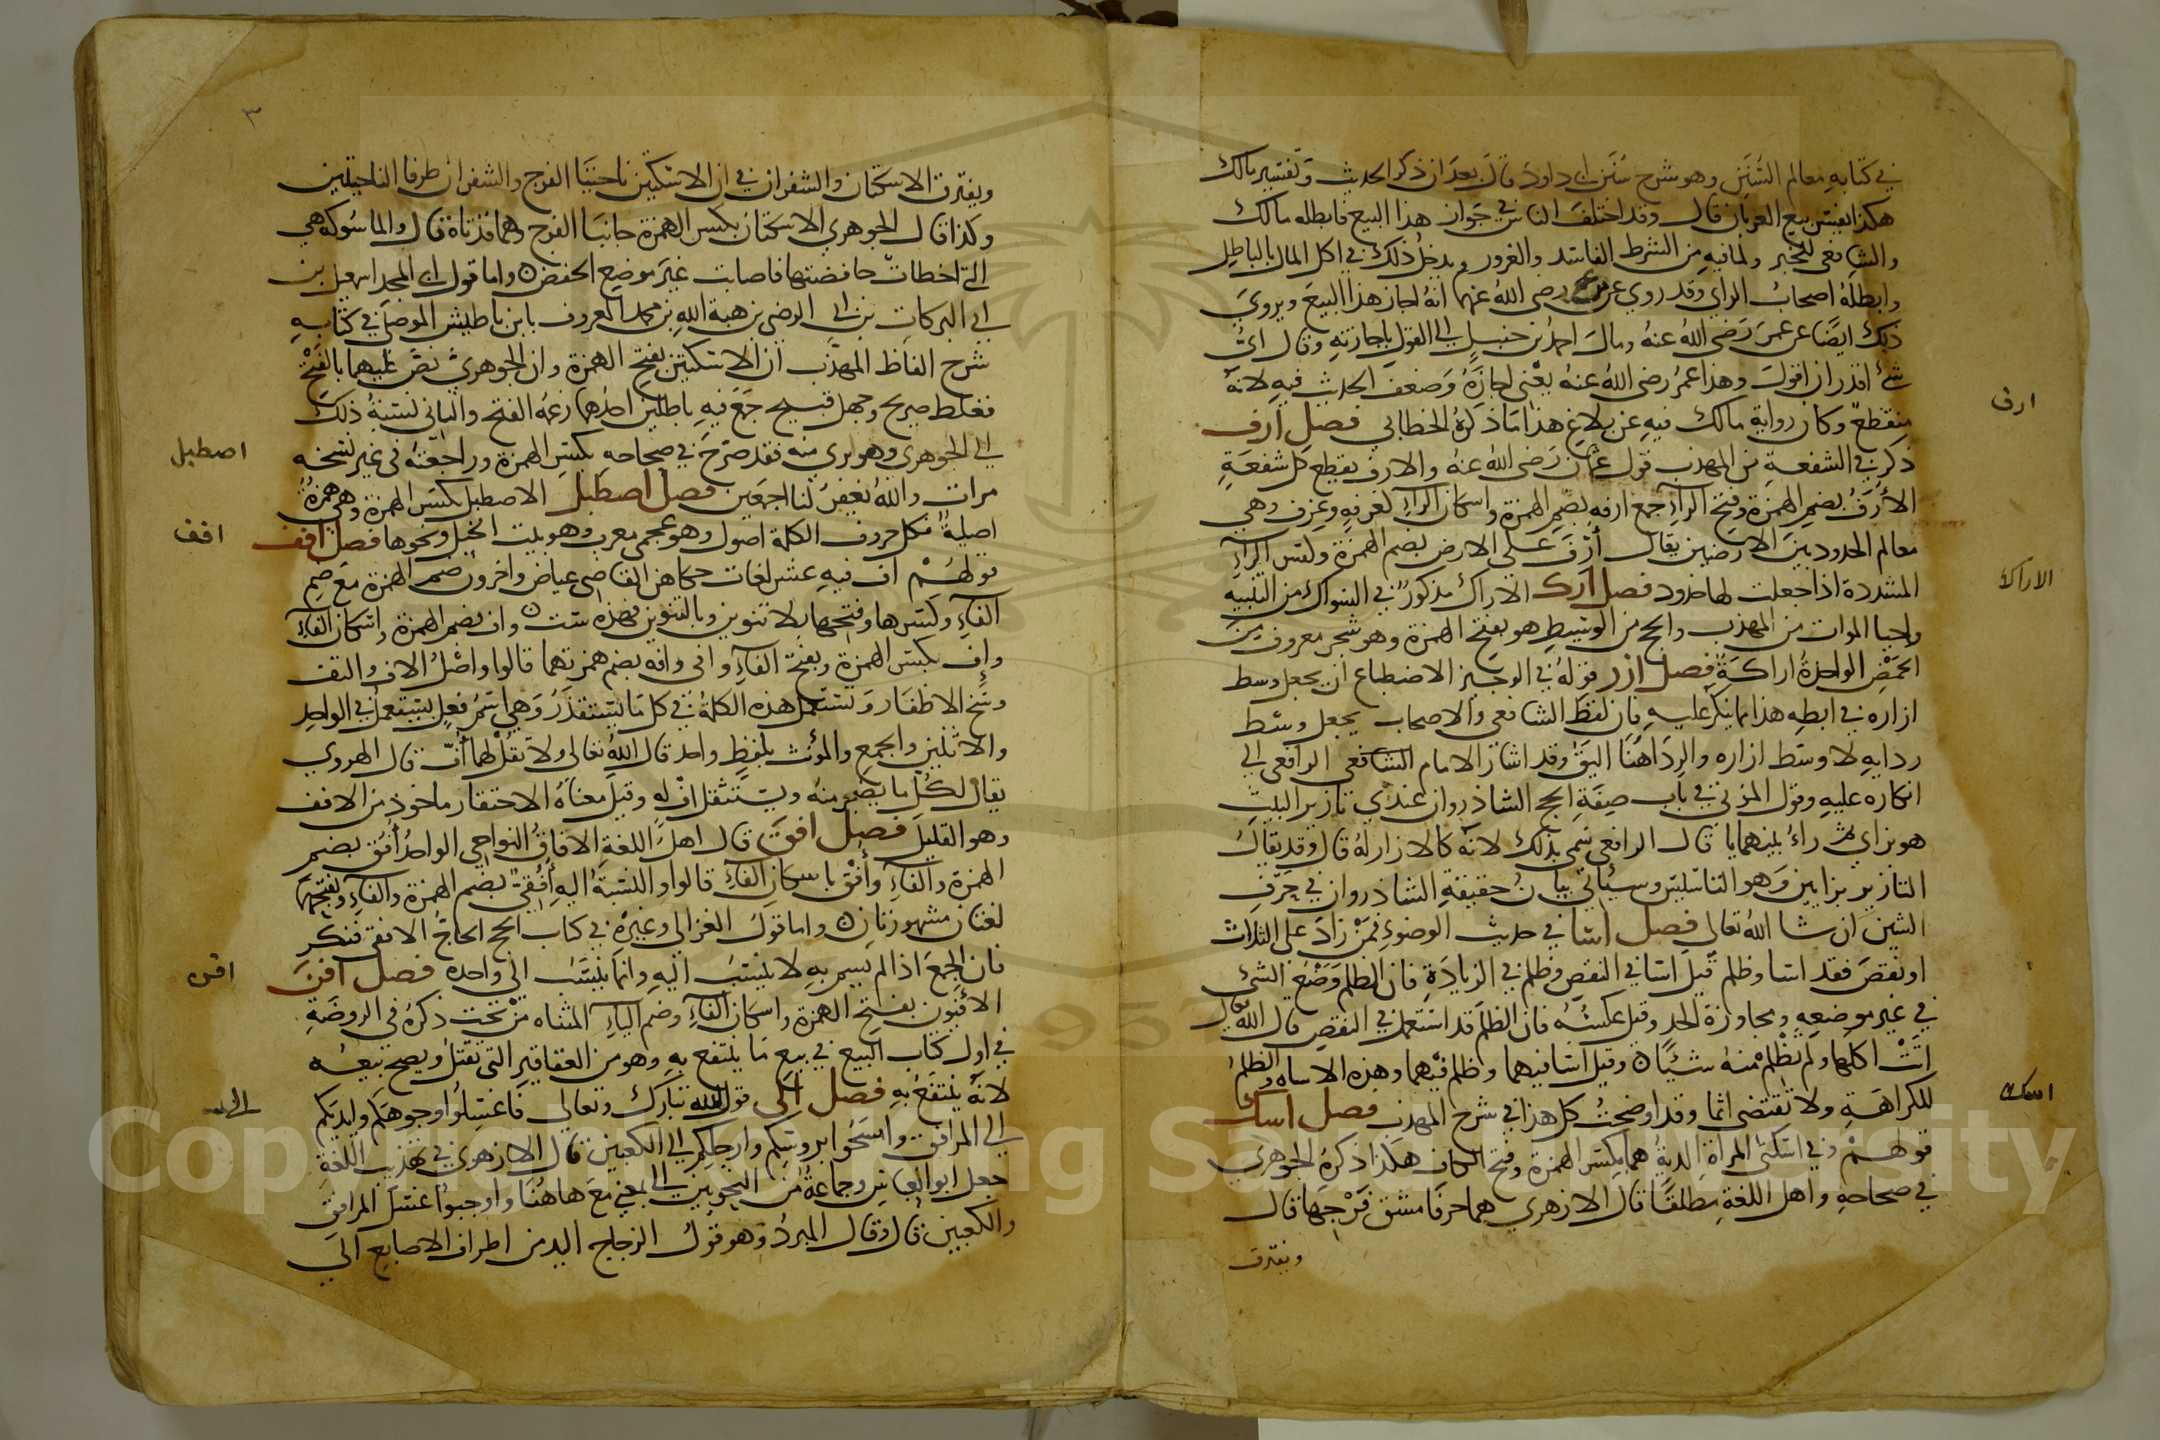 في كتابه معالم السنن وهو شرح سنن ابي داود قال بعد ان ذكر الحديث وتفسير مالك
هكذا يفسر بيع العربان قال وقد اختلف الناس في جواز هذا البيع فابطله مالك
والشافعي للخبر ولما فيه من الشرط الفاسد والغرور ويدخل ذلك في اكل المال بالباطل
وابطله اصحاب الراي وقد روي عن رضي الله عنهما انه اجاز هذا البيع ويروي
ذلك ايضا عن عمر رضي الله عنه ومال احمد بن حنبل الي القول باجازته وقال اي
شيء اقدر ان اقول وهذا عمر رضي الله عنه يعني اجازه وضعف الحديث فيه لانه
منقطع وكان رواية مالك فيه عن بلاغ هذا ما ذكره الخطابي فصل ارف
ذكر في الشفعة من المهذب قول عثمان رضي الله عنه والارف يقطع كل شفعة
الأرف بضم الهمزة وفتح الراء جمع ارفه بضم الهمزة واسكان الراء كغرفة وغرف وهي
معالم الحدود بين الارضين يقال أرّف على الارض بضم الهمزة وكسر الراء
المشددة اذا جعلت لها حدود فصل ارك الاراك مذكور في السواك من التنبيه
واحيا الموات من المهذب والحج من الوسيط هو بفتح الهمزة وهو شجر معروف من
الحمض الواحدة اراكة فصل ازر قوله في الوجيز الاضطباع ان يجعل وسط
ازاره في ابطه هذا مما ينكر عليه فان لفظ الشافعي والاصحاب يجعل وسط
ردايه لا وسط ازاره والرداهنا اليق وقد اشار الامام الشافعي الرافعي الي
انكاره عليه وقول المزني في باب صيغة الحج الشاذروان عندي تازير البيت
هو بزاي ثم راء بينهما يا قال الرافعي سمي بذلك لانه كالازار له قال وقد يقال
التازيز بزايين وهو التاسيس وسياتي بيان حقيقة الشاذروان في حرف
الشين ان شا الله تعالي فصل اسا في حديث الوضوء فمن زاد على الثلاث
او نقص فقد اسا وظلم قيل اسا في النقص وظلم في الزيادة فان الظلم وضع الشيء
في غير موضعه ومجاوزة الحد وقيل عكسه فان الظلم قد استعمل في النقص قال الله تعالى
اتت اكلها ولم تظلم منه شيئا وقيل اسا فيهما وظلم فيهما وهذه الاساه والظلم
للكراهة ولا تقتضي اثما وقد اوضحت كل هذا في شرح المهذب فصل اسك
قولهم وفي اسكتي المراة الدية هما بكسر الهمزة وفتح الكاف هكذا ذكره الجوهري
في صحاحه واهل اللغة مطلقا قال الازهري هما حرفا مشق فرجها قال
ويفترق
ارف
الاراك
اسك
٣
ويفترق الاسكتان والشفران في ان الاسكتين ناحيتا الفرج والشفران طرفا الناحيتين
وكذا قال الجوهري الاسكتان بكسر الهمزة جانبا الفرج وهما قذتاه قال والماسوكة هي
التي اخطات خافضتها فاصابت غير موضع الخفض واما قول ابي المجد اسمعيل بن
ابي البركات بن ابي الرضي بن هبة الله بن محمد المعروف بابن باطيش الموصلي في كتابه
شرح الفاظ المهذب ان الاسكتين بفتح الهمزة وان الجوهري نص عليهما بالفتح
فغلط صريح وجهل قبيح جمع فيه باطلين احدهما زعمه الفتح والثاني نسبته ذلك
الي الجوهري وهو بري منه فقد صرح في صحاحه بكسر الهمزة وراجعته في غير نسخه
مرات والله يغفر لنا اجمعين فصل اصطبل الاصطبل بكسر الهمزة وهي همزة
اصلية فكل حروف الكلمة اصول وهو عجمي معرب وهو بيت الخيل ونحوها فصل افف
قولهم اف فيه عشر لغات حكاهن القاضي عياض واخرون ضم الهمزة مع ضم
الفاء وكسرها وفتحها بلا تنوين وبالتنوين فهذه ست واف بضم الهمزة واسكان الفاء
وإف بكسر الهمزة وبفتح الفاء وافى وافه بضم همزتهما قالوا واصل الاف والتف
وسخ الاظفار وتستعمل هذه الكلمة في كل ما يستقذر وهي اسم فعل يستعمل في الواحد
والاثنين والجمع والمؤنث بلفظ واحد قال الله تعالى ولا تقل لهما أف قال الهروي
يقال لكل ما يضجر منه ويستثقل اف له وقيل معناه الاحتقار ماخوذ من الافف
وهو القليل فصل افق قال اهل اللغة الافاق النواحي الواحد أفق بضم
الهمزة والفاء وأفق باسكان الفاء قالوا والنسبة اليه أفقي بضم الهمزة والفاء وبفتحهما
لغتان مشهورتان واما قول الغزالي وغيره في كتاب الحج الحاج الافقي فمنكر
فان الجمع اذا لم يسم به لا ينسب اليه وانما ينسب الي واحده فصل افن
الأفيون بفتح الهمزة واسكان الفاء وضم الياء المثناه من تحت ذكره في الروضة
في اول كتاب البيع في بيع ما ينتفع به وهو من العقاقير التي تقتل ويصح بيعه
لانه ينتفع به فصل الى قول الله تبارك وتعالى فاغسلوا وجوهكم وايديكم
الي المرافق وامسحوا بروسكم وارجلكم الي الكعبين قال الازهري في تهذيب اللغة
جعل ابو العباس وجماعة من النحويين الى بمعنى مع هاهنا واوجبوا غسل المرافق
والكعبين قال وقال المبرد وهو قول الزجاج اليد من اطراف الاصابع الي
اصطبل
افف
افن
الى
Copyright © King Saud University
1957